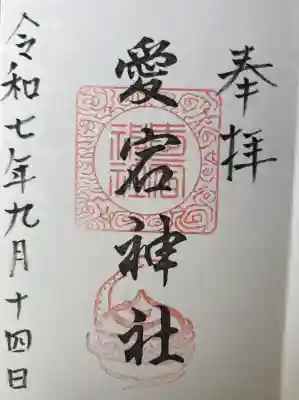 奉拝
愛宕神社
令和七年九月十四日